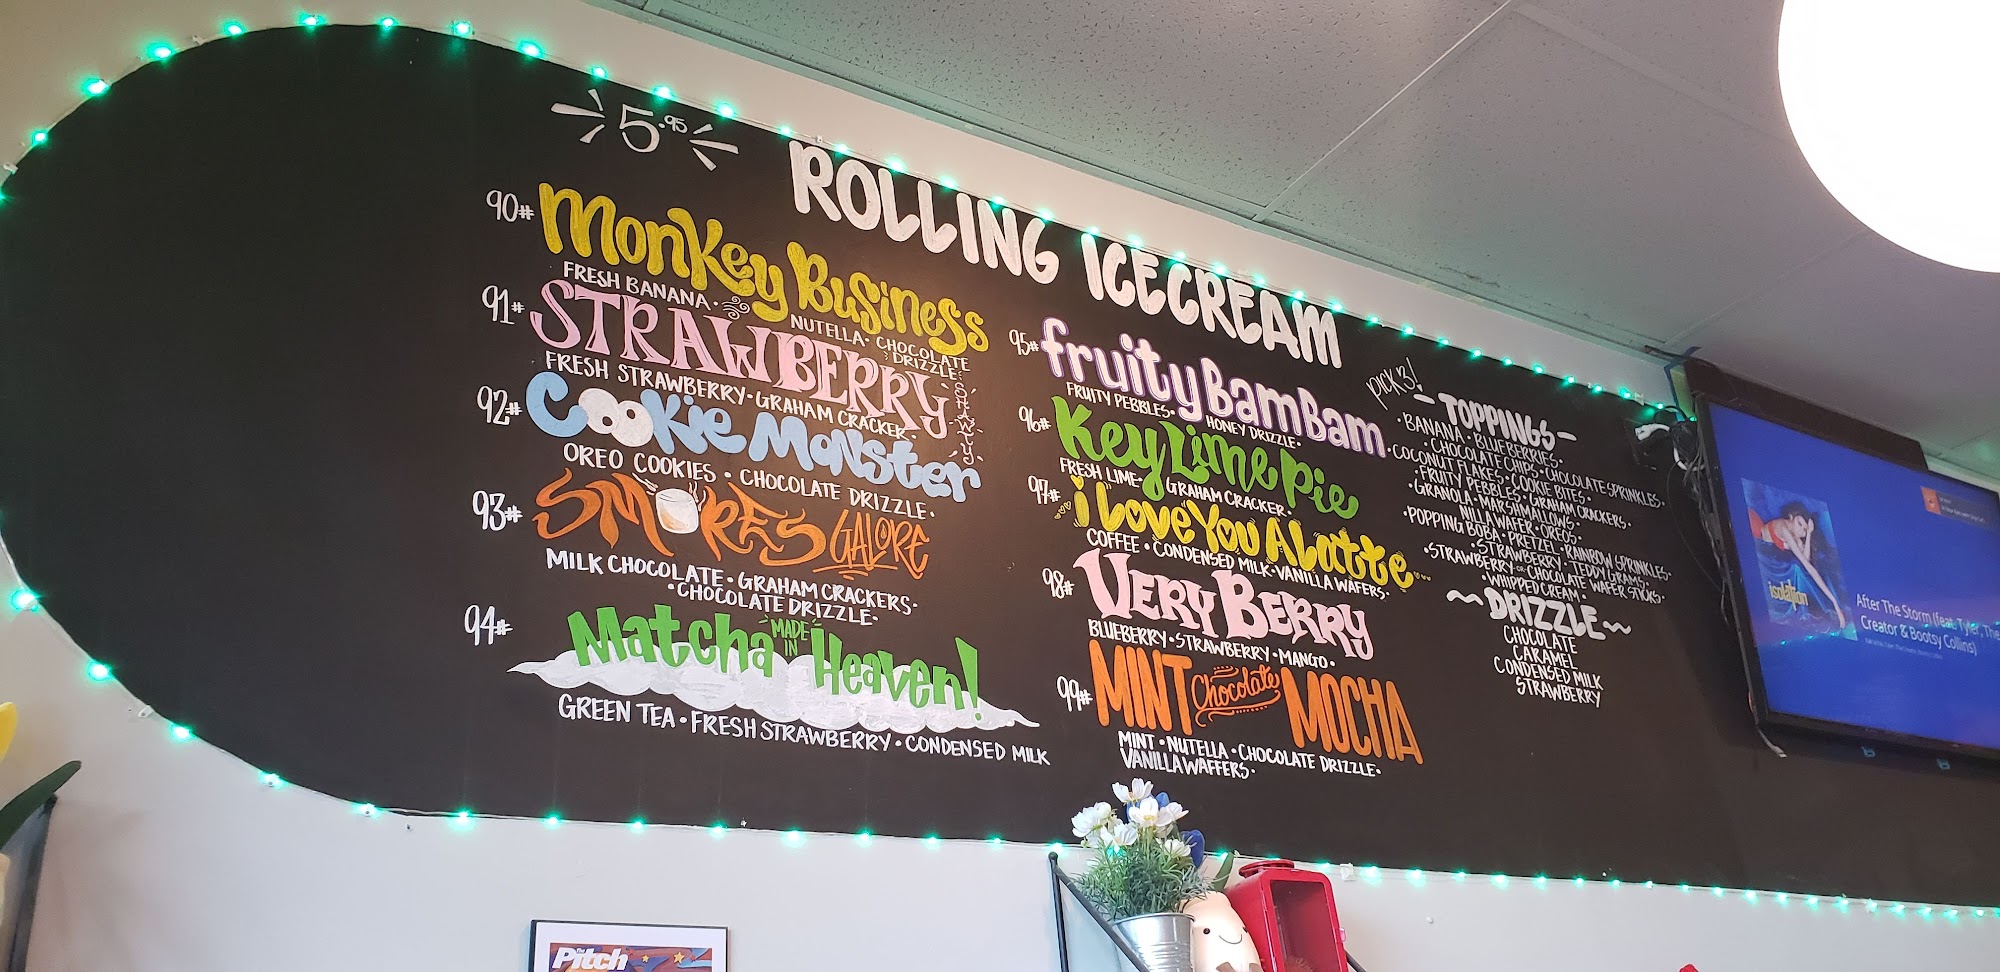 5.95
ROLLING ICECREAM
90#
Monkey Business
FRESH BANANA • NUTELLA • CHOCOLATE
DRIZZLE
91#
STRAWBERRY
SHAWTY
FRESH STRAWBERRY • GRAHAM CRACKER •
92#
Cookie Monster
OREO COOKIES • CHOCOLATE DRIZZLE •
93#
SMORES GALORE
MILK CHOCOLATE • GRAHAM CRACKERS •
• CHOCOLATE DRIZZLE •
94#
Matcha MADE IN Heaven!
GREEN TEA • FRESH STRAWBERRY • CONDENSED MILK
95#
fruity BamBam
FRUITY PEBBLES • HONEY DRIZZLE •
96#
Key Lime Pie
FRESH LIME • GRAHAM CRACKER •
97#
i Love You A Latte
COFFEE • CONDENSED MILK • VANILLA WAFERS •
98#
VERY BERRY
BLUEBERRY • STRAWBERRY • MANGO •
99#
MINT Chocolate MOCHA
MINT • NUTELLA • CHOCOLATE DRIZZLE •
VANILLA WAFFERS •
pick 3!
– TOPPINGS –
• BANANA • BLUEBERRIES •
• CHOCOLATE CHIPS • CHOCOLATE SPRINKLES •
• COCONUT FLAKES • COOKIE BITES •
• FRUITY PEBBLES • GRAHAM CRACKERS •
• GRANOLA • MARSHMALLOWS •
NILLA WAFER • OREOS •
• POPPING BOBA • PRETZEL • RAINBOW SPRINKLES •
• STRAWBERRY • TEDDY GRAMS •
• STRAWBERRY OR CHOCOLATE WAFER STICKS •
• WHIPPED CREAM •
~ DRIZZLE ~
CHOCOLATE
CARAMEL
CONDENSED MILK
STRAWBERRY
isolation
After The Storm (feat. Tyler, The
Creator & Bootsy Collins)
The Pitch